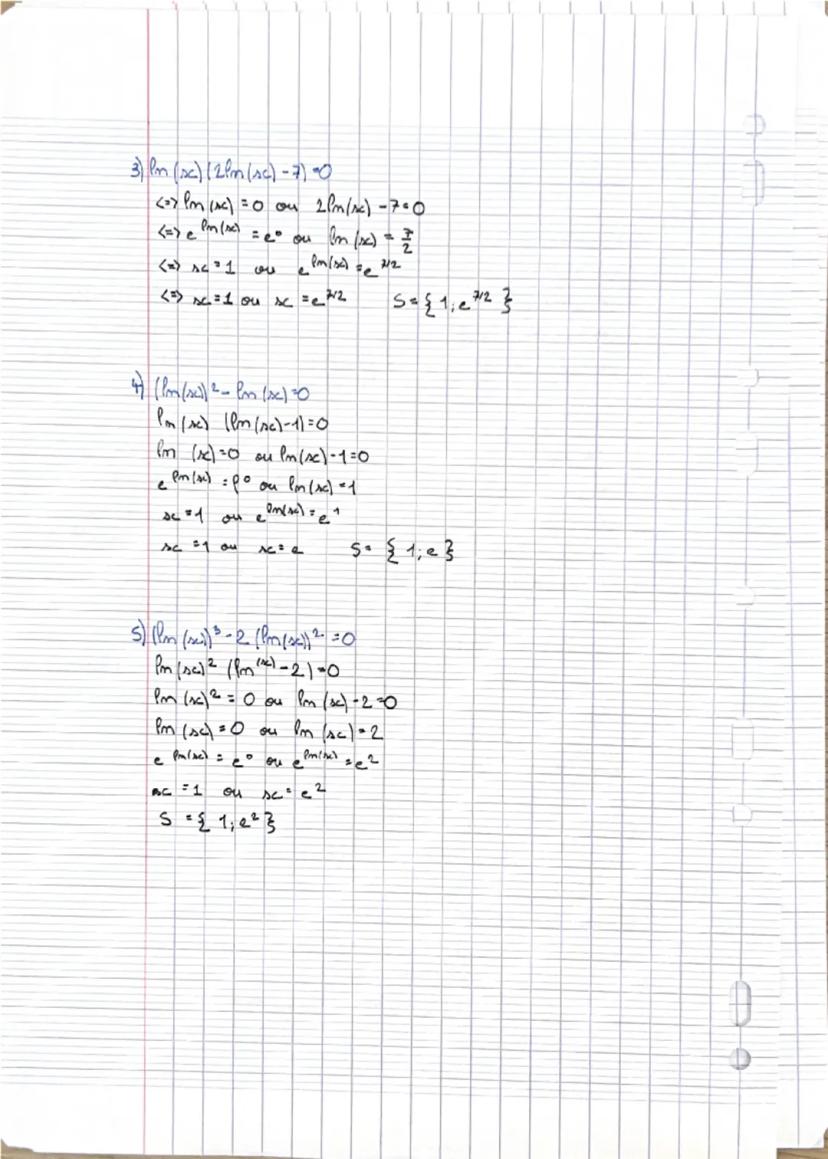 3) ln(x)(2ln(x)-7)=0
<=> ln(x)=0 ou 2ln(x)-7=0
<=> e^ln(x) = e^0 ou ln(x) = 7/2
<=> x=1 ou e^ln(x) = e^7/2
<=> x=1 ou x=e^7/2 S={1;e^7/2}
4) (ln(x))^2-ln(x)=0
ln(x) (ln(x)-1)=0
ln (x)=0 ou ln(x)-1=0
e^ln(x) = e^0 ou ln(x)=1
x=1 ou e^ln(x) = e^1
x=1 ou x=e S= {1;e}
5) (ln(x))^3-2(ln(x))^2=0
ln(x)^2 (ln(x)-2)=0
ln(x)^2=0 ou ln(x)-2=0
ln(x)=0 ou ln(x)=2
e^ln(x) = e^0 ou e^ln(x) = e^2
x=1 ou x=e^2
S={1;e^2}